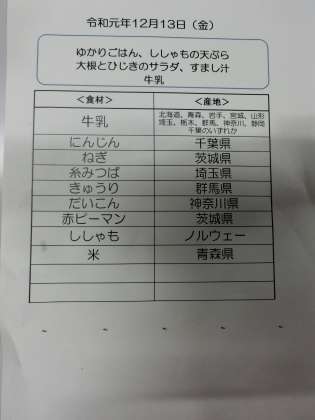 令和元年12月13日（金）
ゆかりごはん、ししゃもの天ぷら
大根とひじきのサラダ、すまし汁
牛乳
＜食材＞ ＜産地＞
牛乳 北海道、青森、岩手、宮城、山形
埼玉、栃木、群馬、神奈川、静岡
千葉のいずれか
にんじん 千葉県
ねぎ 茨城県
糸みつば 埼玉県
きゅうり 群馬県
だいこん 神奈川県
赤ピーマン 茨城県
ししゃも ノルウェー
米 青森県